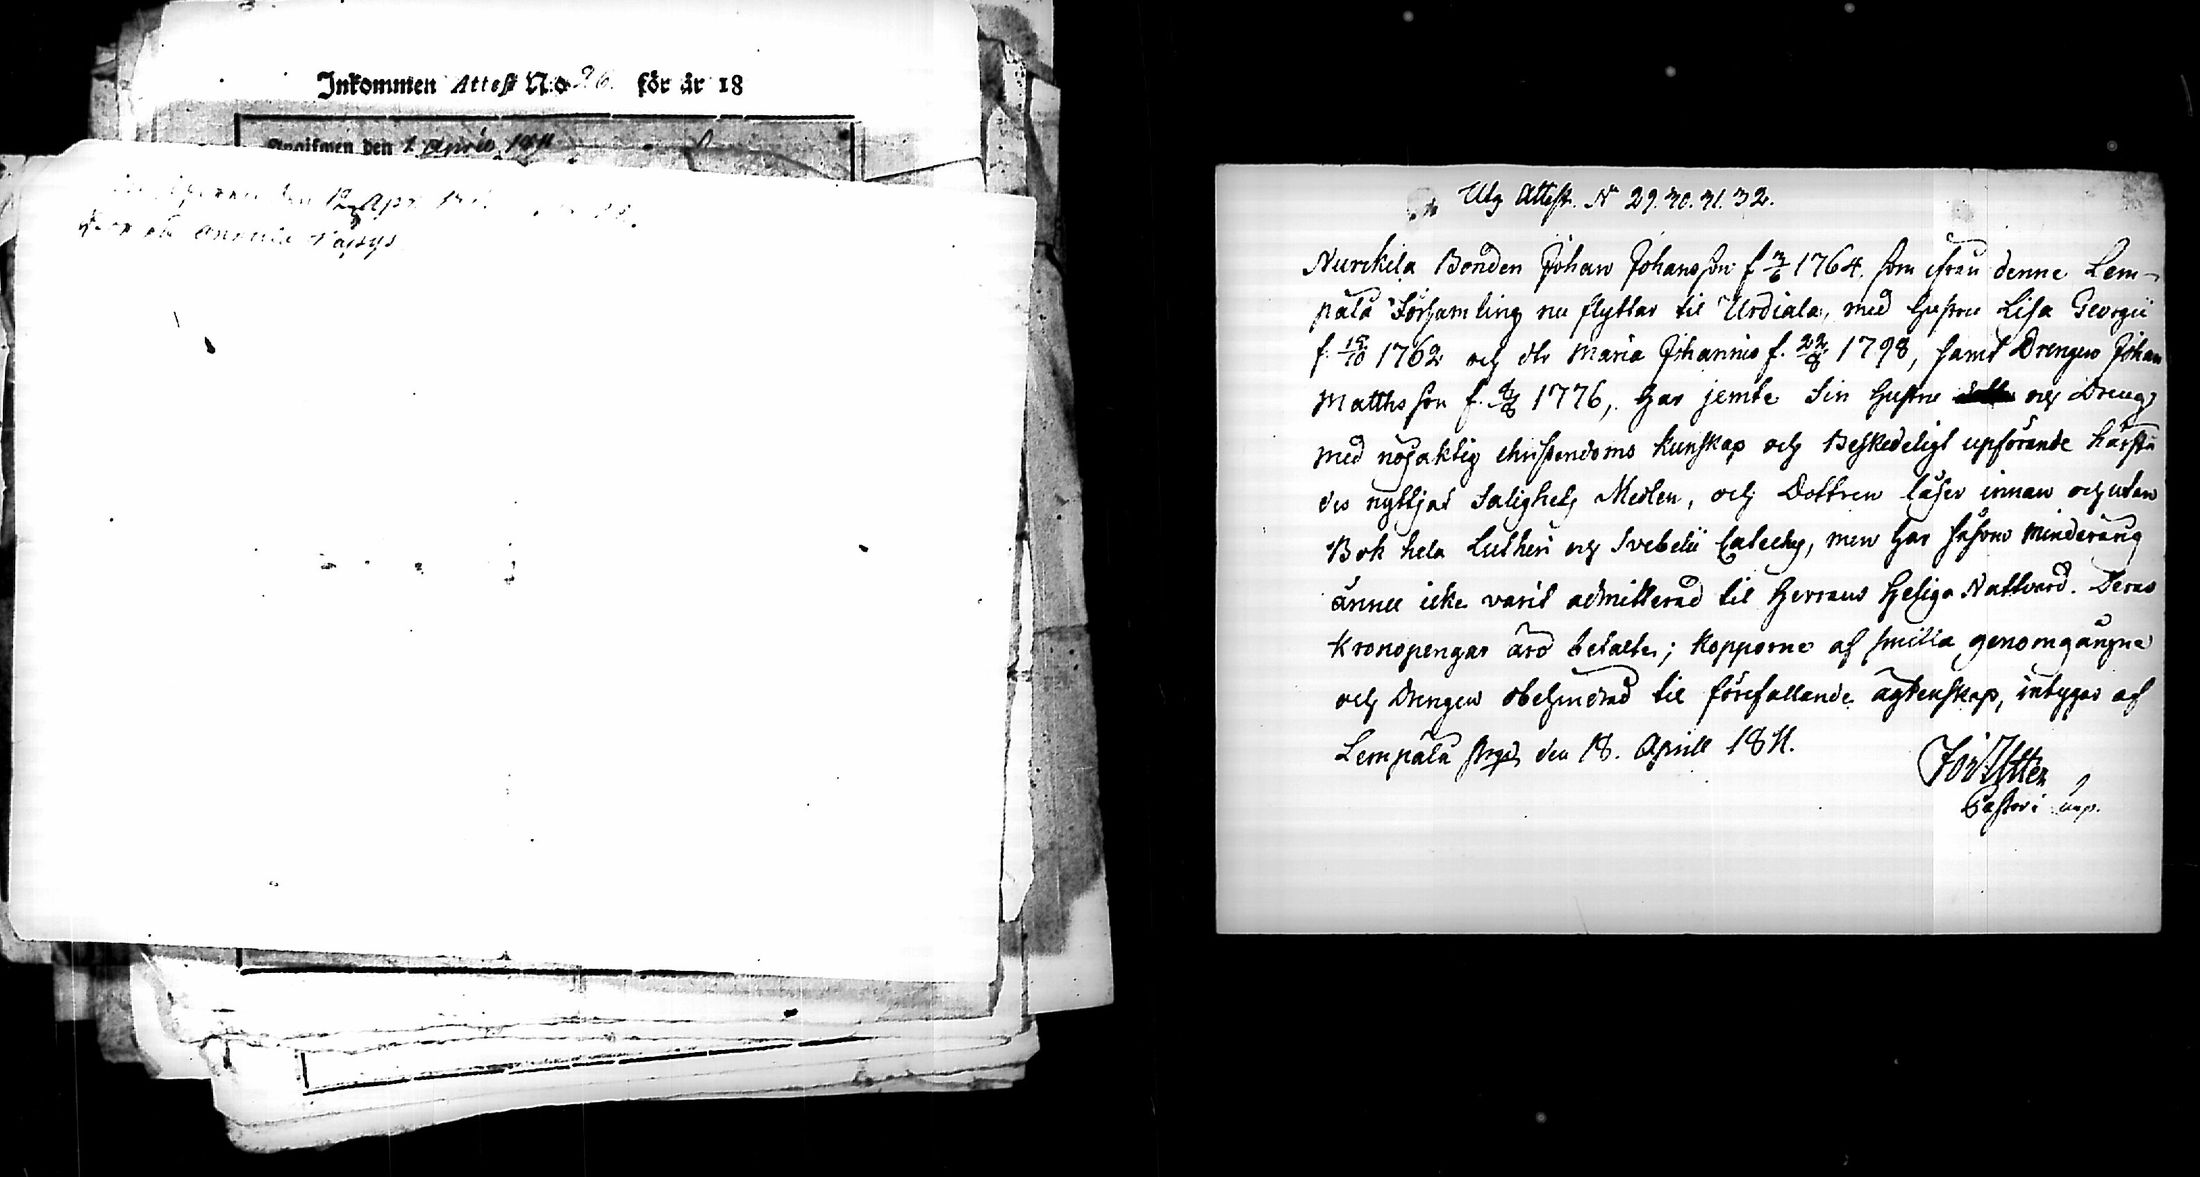 Inkommen Attest N:o 26. för år 18
den 1 April 1811
12 Apr.
Utg Attest. N 29. 30. 31. 32.
Nurckila Bonden Johan Johansson f 3/6 1764. som ifrån denne Lem-
pälä Församling nu flyttar til Urdiala, med hustru Lisa Georgii
f. 19/10 1762 och dtr Maria Johannis f. 22/8 1798, samt Drengen Johan
Matthsson f. 1776, har jemte Sin hustru och Dreng
med nöjaktig christendoms kunskap och Beskedeligt upförande härstä
des nyttjat Salighets Medlen, och Dottren läser innan och utan
Bok hela Lutheri och Svebelii Cateches, men har såsom Minderårig
ännu icke varit admitterad til Herrans Heliga Nattvard. Deras
kronopengar äro betalte; kopporne af smitta genomgångne
och Drengen obehindrad til förefallande ägtenskap, intygas af
Lempälä den 18. Aprill 1811.
Pastori